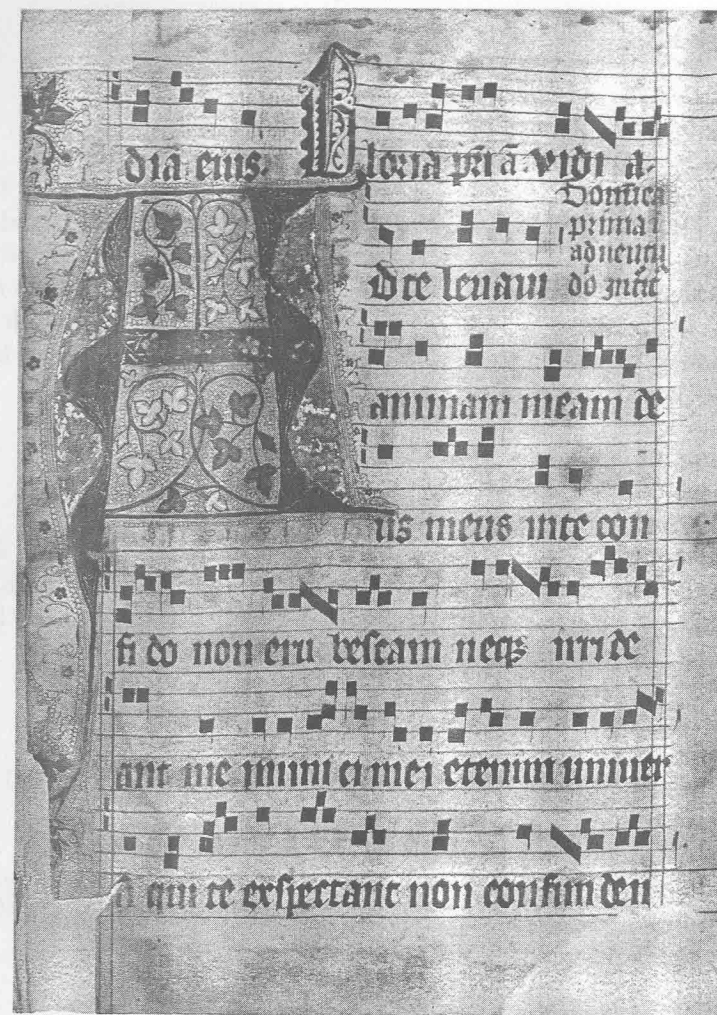 dia eius. Gloria pr̄i ā. vidi a.
Domīca
prima ī
aduentu
dō īntrt
D te leuaui
animam meam de
us meus in te con
fi do non eru bescam neqꝫ irri de
ant me inimi ci mei etenim uniuer
si qui te exspectant non confun den